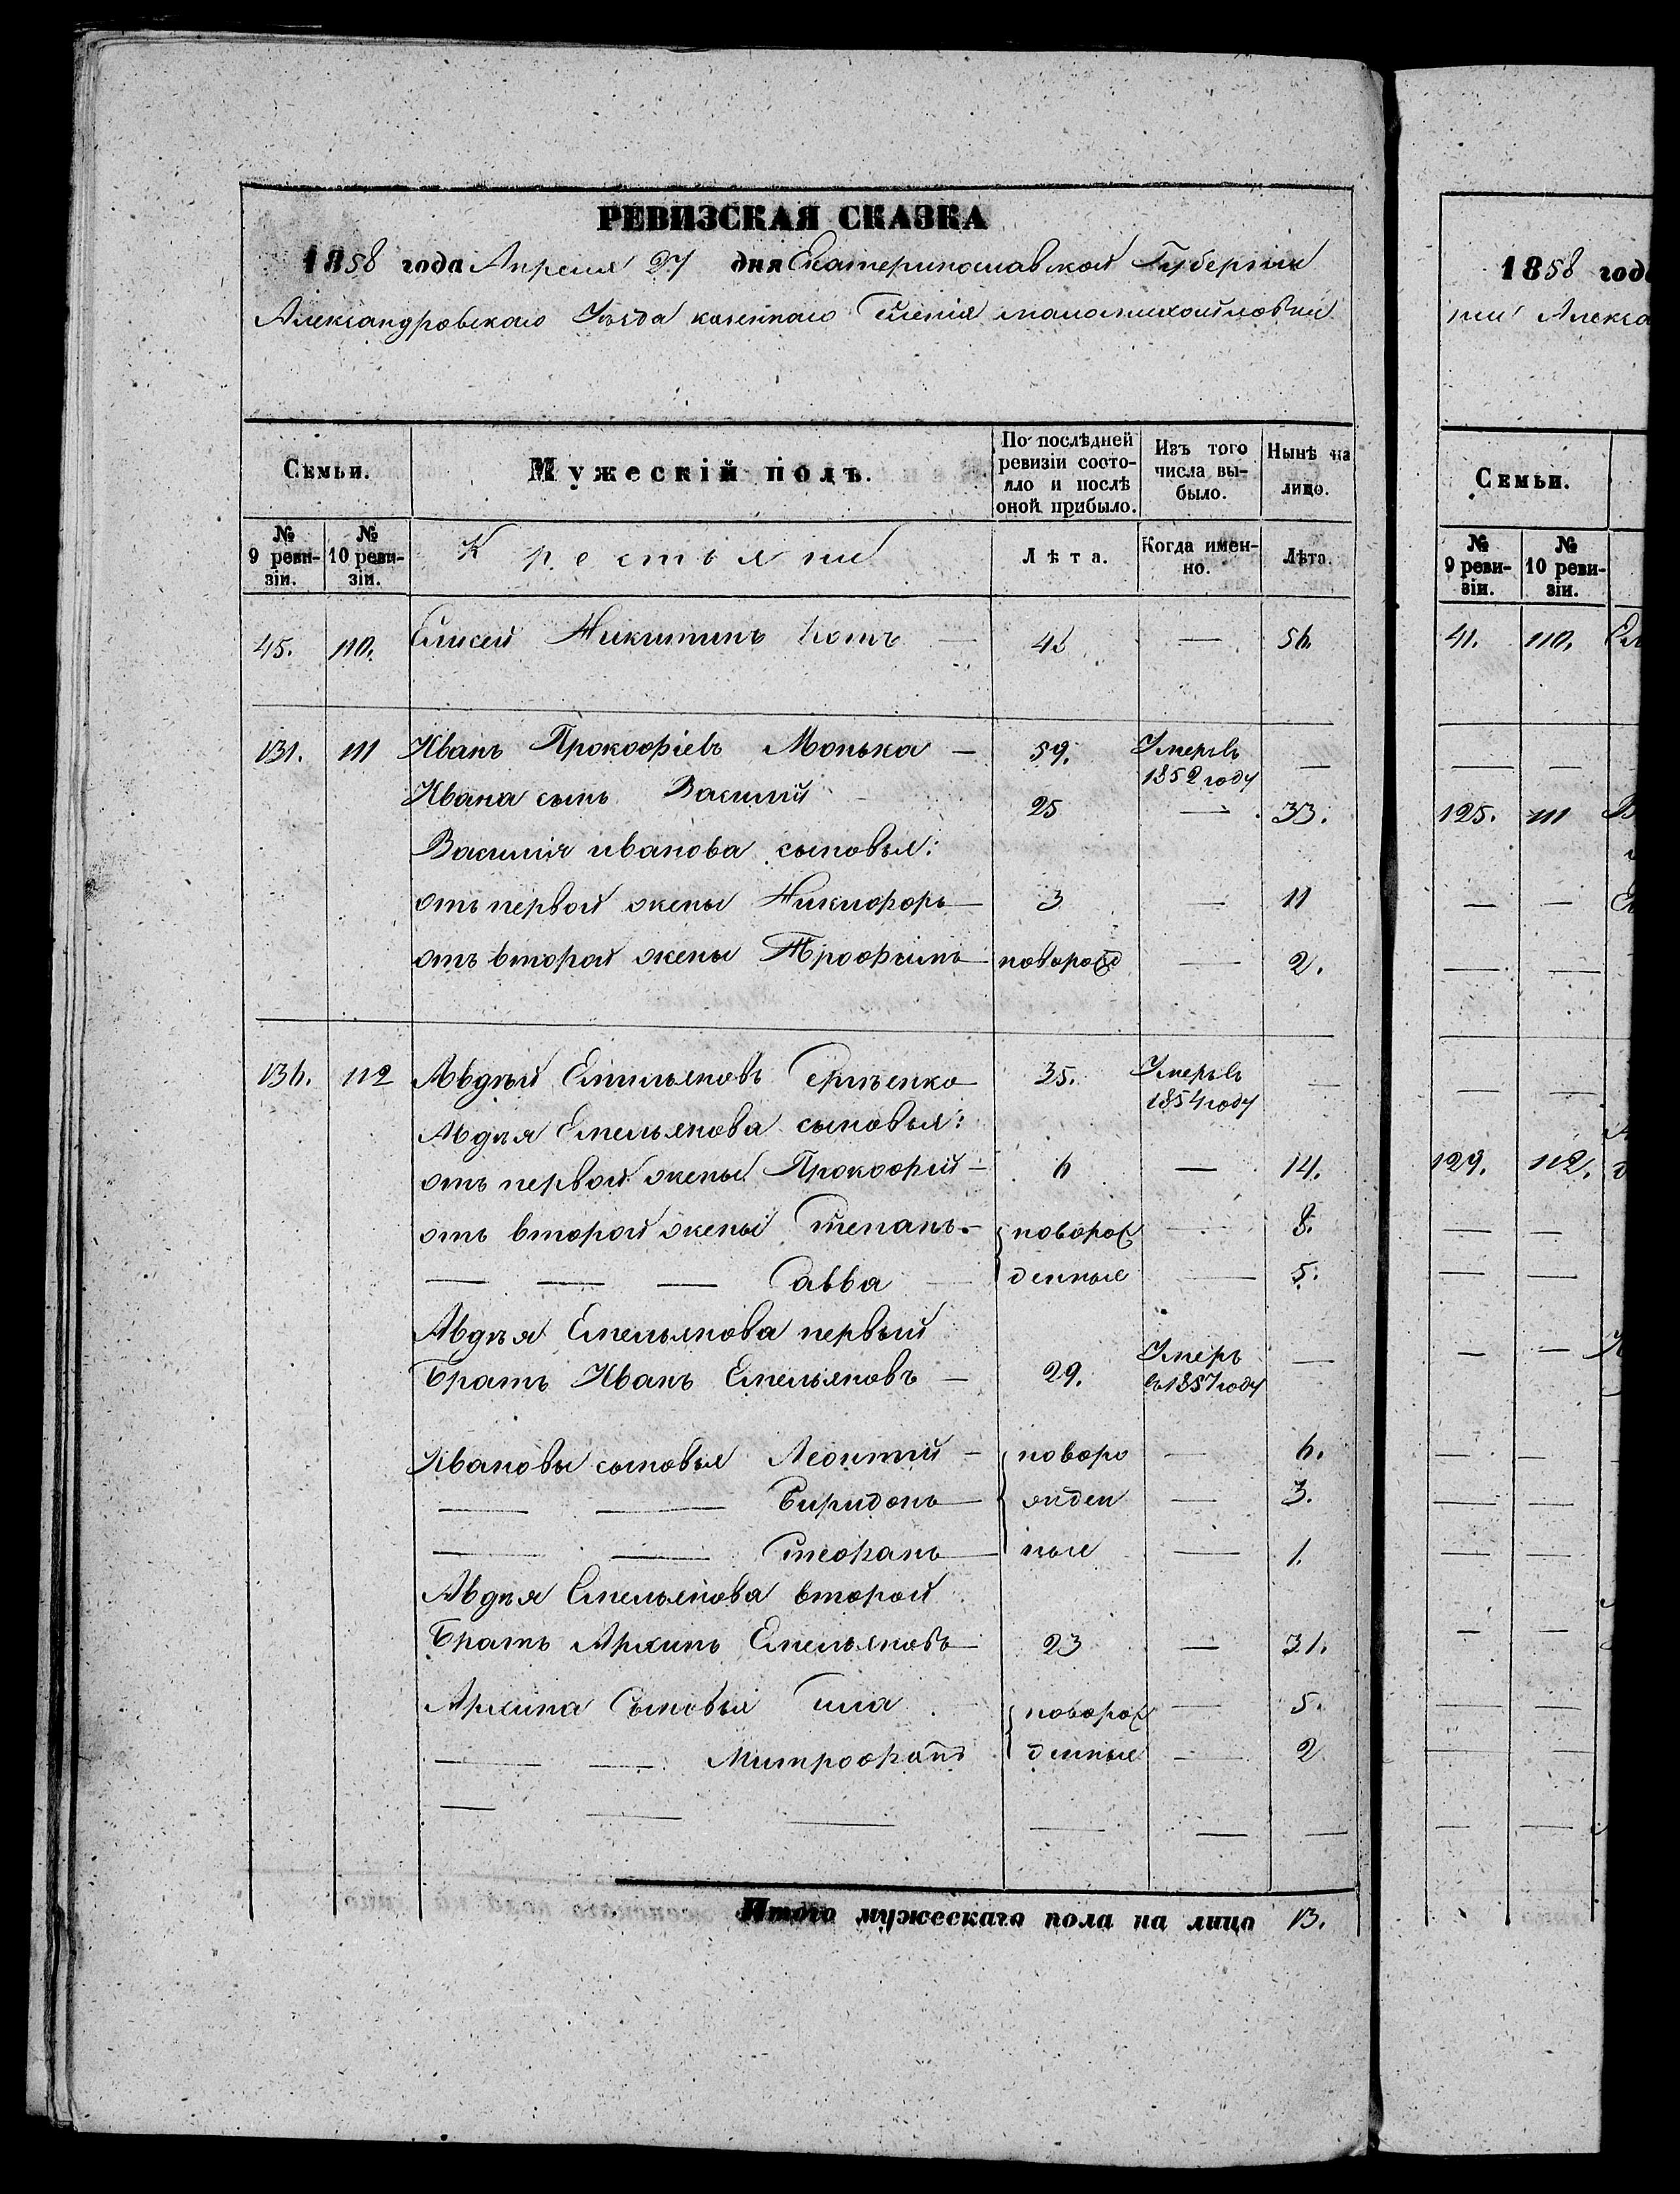 РЕВИЗСКАЯ СКАЗКА
1858 года Апреля 27 дня Екатеринославской Губернии
Александровскаго Уѣзда казеннаго Селенія маломихайловки
Семьи.
Мужескій полъ.
По послѣдней ревизіи состояло и послѣ оной прибыло.
Изъ того числа выбыло.
Нынѣ на лицо.
№ 9 ревизіи.
№ 10 ревизіи.
Крестьяне
Лѣта.
Когда именно.
Лѣта.
45. 110. Елисей Никитинъ Котъ — 48 — 56.
131. 111 Иванъ Прокофіевъ Монька — 59. Умеръ въ 1852 году —
Ивана сынъ Василій — 25 — 33.
Василія иванова сыновья:
отъ первой жены Никифоръ — 3 — 11
отъ второй жены Трофимъ —новорожд — 2.
136. 112 Авдѣй Емельяновъ Сергѣенко 35. Умеръ въ 1854 году —
Авдѣя Емельянова сыновья:
отъ первой жены Прокофій — 6 — 14.
отъ второй жены Степанъ. — новорож — 8.
— — — Савва — денные — 5.
Авдѣя Емельянова первый
братъ Иванъ Емельяновъ — 29. Умеръ въ 1857 году —
Ивановы сыновья Леонтий — новоро — 6.
— — Спиридонъ — жден — 3.
— — Стефанъ — ные — 1.
Авдѣя Емельянова второй
братъ Архипъ Емельяновъ — 23 — 31.
Архипа Сыновья Сила новорож — 5.
— — Митрофанъ денные — 2
— — — — — —
Итого мужескаго пола на лицо 13.
1858 года
нии Алекса
Семьи.
№ 9 ревизіи.
№ 10 ревизіи.
41. 110. Ел
— —
125. 111 В
— —
— —
— —
129. 112.
— —
— —
— —
— —
— —
— —
— —
— —
— —
— —